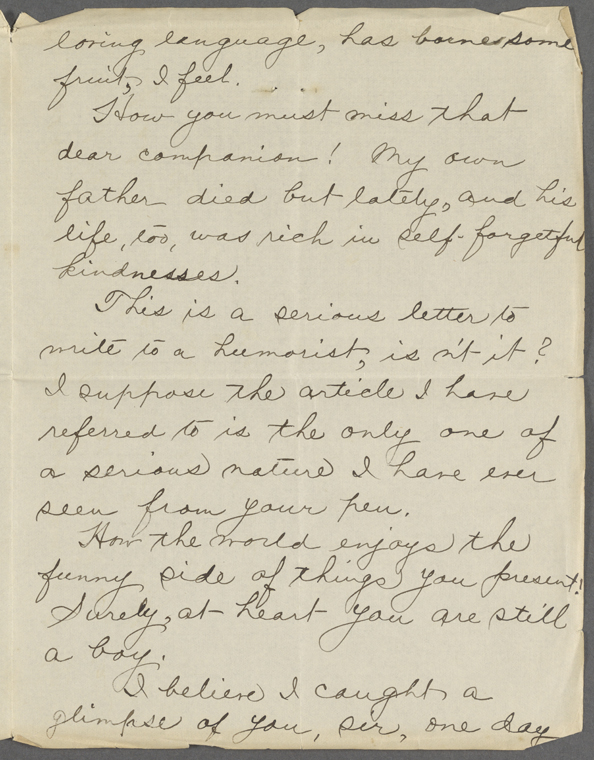 loving language, has borne some
fruit, I feel.
How you must miss that
dear companion! My own
father died but lately, and his
life, too, was rich in self-forgetful
kindnesses.
This is a serious letter to
write to a humorist, is n't it?
I suppose the article I have
referred to is the only one of
a serious nature I have ever
seen from your pen.
How the world enjoys the
funny side of things you present!
Surely, at heart you are still
a boy.
I believe I caught a
glimpse of you, sir, one day